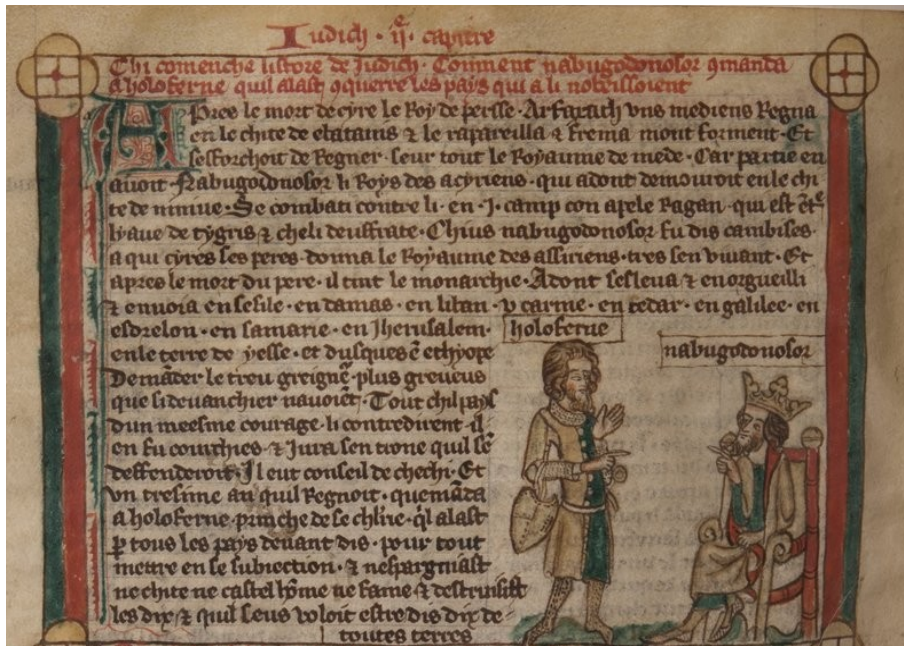 Iudich · ije · capitre
Chi comenche listore de Judich · Coment nabugodonosor 9manda
a holoferne quil alast 9querre les pays qui a li nobeissoient
Apres le mort de cyre le Roy de perse · Arfaxath vns mediens Regna
en le chite de elatains & le rapareilla & frema mont forment · Et
sefforchoit de Regner · seur tout le Royaume de mede · Car partie en
auoit · Nabugodonosor li Roys des acyriens · qui adont demouroit en le chi
te de niniue · Se combati contre li · en · j · camp con apele Ragan · qui est
lyaue de tygris & cheli deuffrate · Chius nabugodonosor fu dis cambises ·
a qui cyres ses peres · donna le Royaume des assiriens · tres sen viuant · Et
apres le mort du pere · il tint le monarchie · Adont sesleua & enorgueilli
& enuoia en sesile · en damas · en liban · v carme · en cedar · en galilee · en
esdrelon · en samarie · en Jherusalem ·
en le terre de yesse · et dusques e ethyope
Demader le treu greigne · plus greueus
que si deuanchier nauoiet · Tout chil pays
dun meesme courage · li contredirent · il
en fu courchies · & Jura sen trone quil se
deffenderoit · Jl eut conseil de chechi · Et
vn tresime an quil Regnoit · quemada
a holoferne · prinche de se chlrie · ql alast
p tous les pays deuant dis · pour tout
mettre en se subiection · & nespargniast
ne chite ne castel home ne fame & destruisist
les dix & quil seus voloit estre dis dix de
toutes terres
holoferne
nabugodonosor